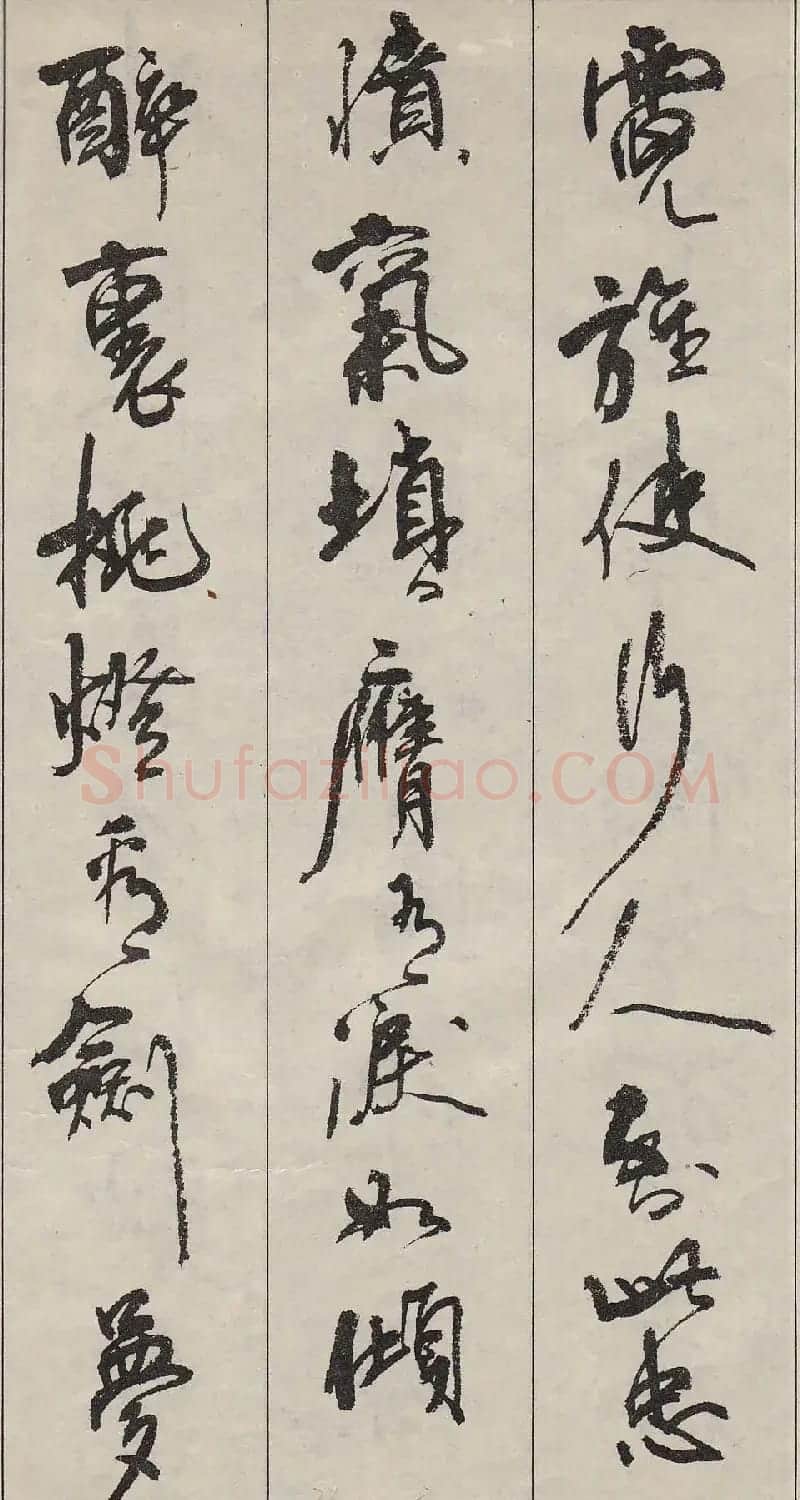 霓旌使行人到此忠
憤氣填膺有淚如傾
醉裏挑燈看劍夢
Shufaziliao.COM